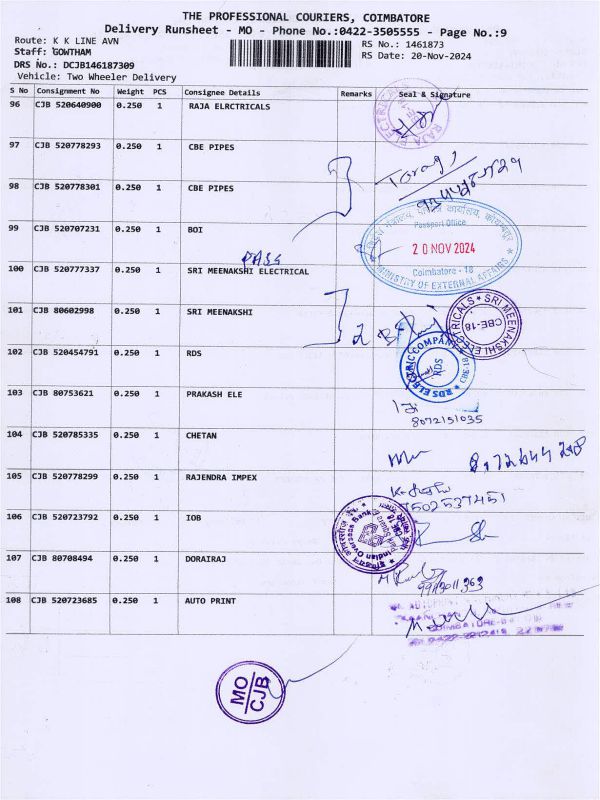 THE PROFESSIONAL COURIERS, COIMBATORE
Delivery Runsheet - MO - Phone No.:0422-3505555 - Page No.:9
Route: K K LINE AVN
RS No.: 1461873
Staff: GOWTHAM
RS Date: 20-Nov-2024
DRS No.: DCJB146187309
Vehicle: Two Wheeler Delivery
S No Consignment No Weight PCS Consignee Details Remarks Seal & Signature
96 CJB 520640900 0.250 1 RAJA ELRCTRICALS
97 CJB 520778293 0.250 1 CBE PIPES
98 CJB 520778301 0.250 1 CBE PIPES
99 CJB 520707231 0.250 1 BOI
Passport Office
20 NOV 2024
Coimbatore - 18
MINISTRY OF EXTERNAL AFFAIRS
PASS
100 CJB 520777337 0.250 1 SRI MEENAKSHI ELECTRICAL
101 CJB 80602998 0.250 1 SRI MEENAKSHI
SRI MEENAKSHI ELECTRICALS
CBE-18
102 CJB 520454791 0.250 1 RDS
RDS ELECTRIC COMPANY
RDS
103 CJB 80753621 0.250 1 PRAKASH ELE
8072151035
104 CJB 520785335 0.250 1 CHETAN
105 CJB 520778299 0.250 1 RAJENDRA IMPEX
7502537451
106 CJB 520723792 0.250 1 IOB
Indian Overseas Bank
107 CJB 80708494 0.250 1 DORAIRAJ
108 CJB 520723685 0.250 1 AUTO PRINT
MO
CJB